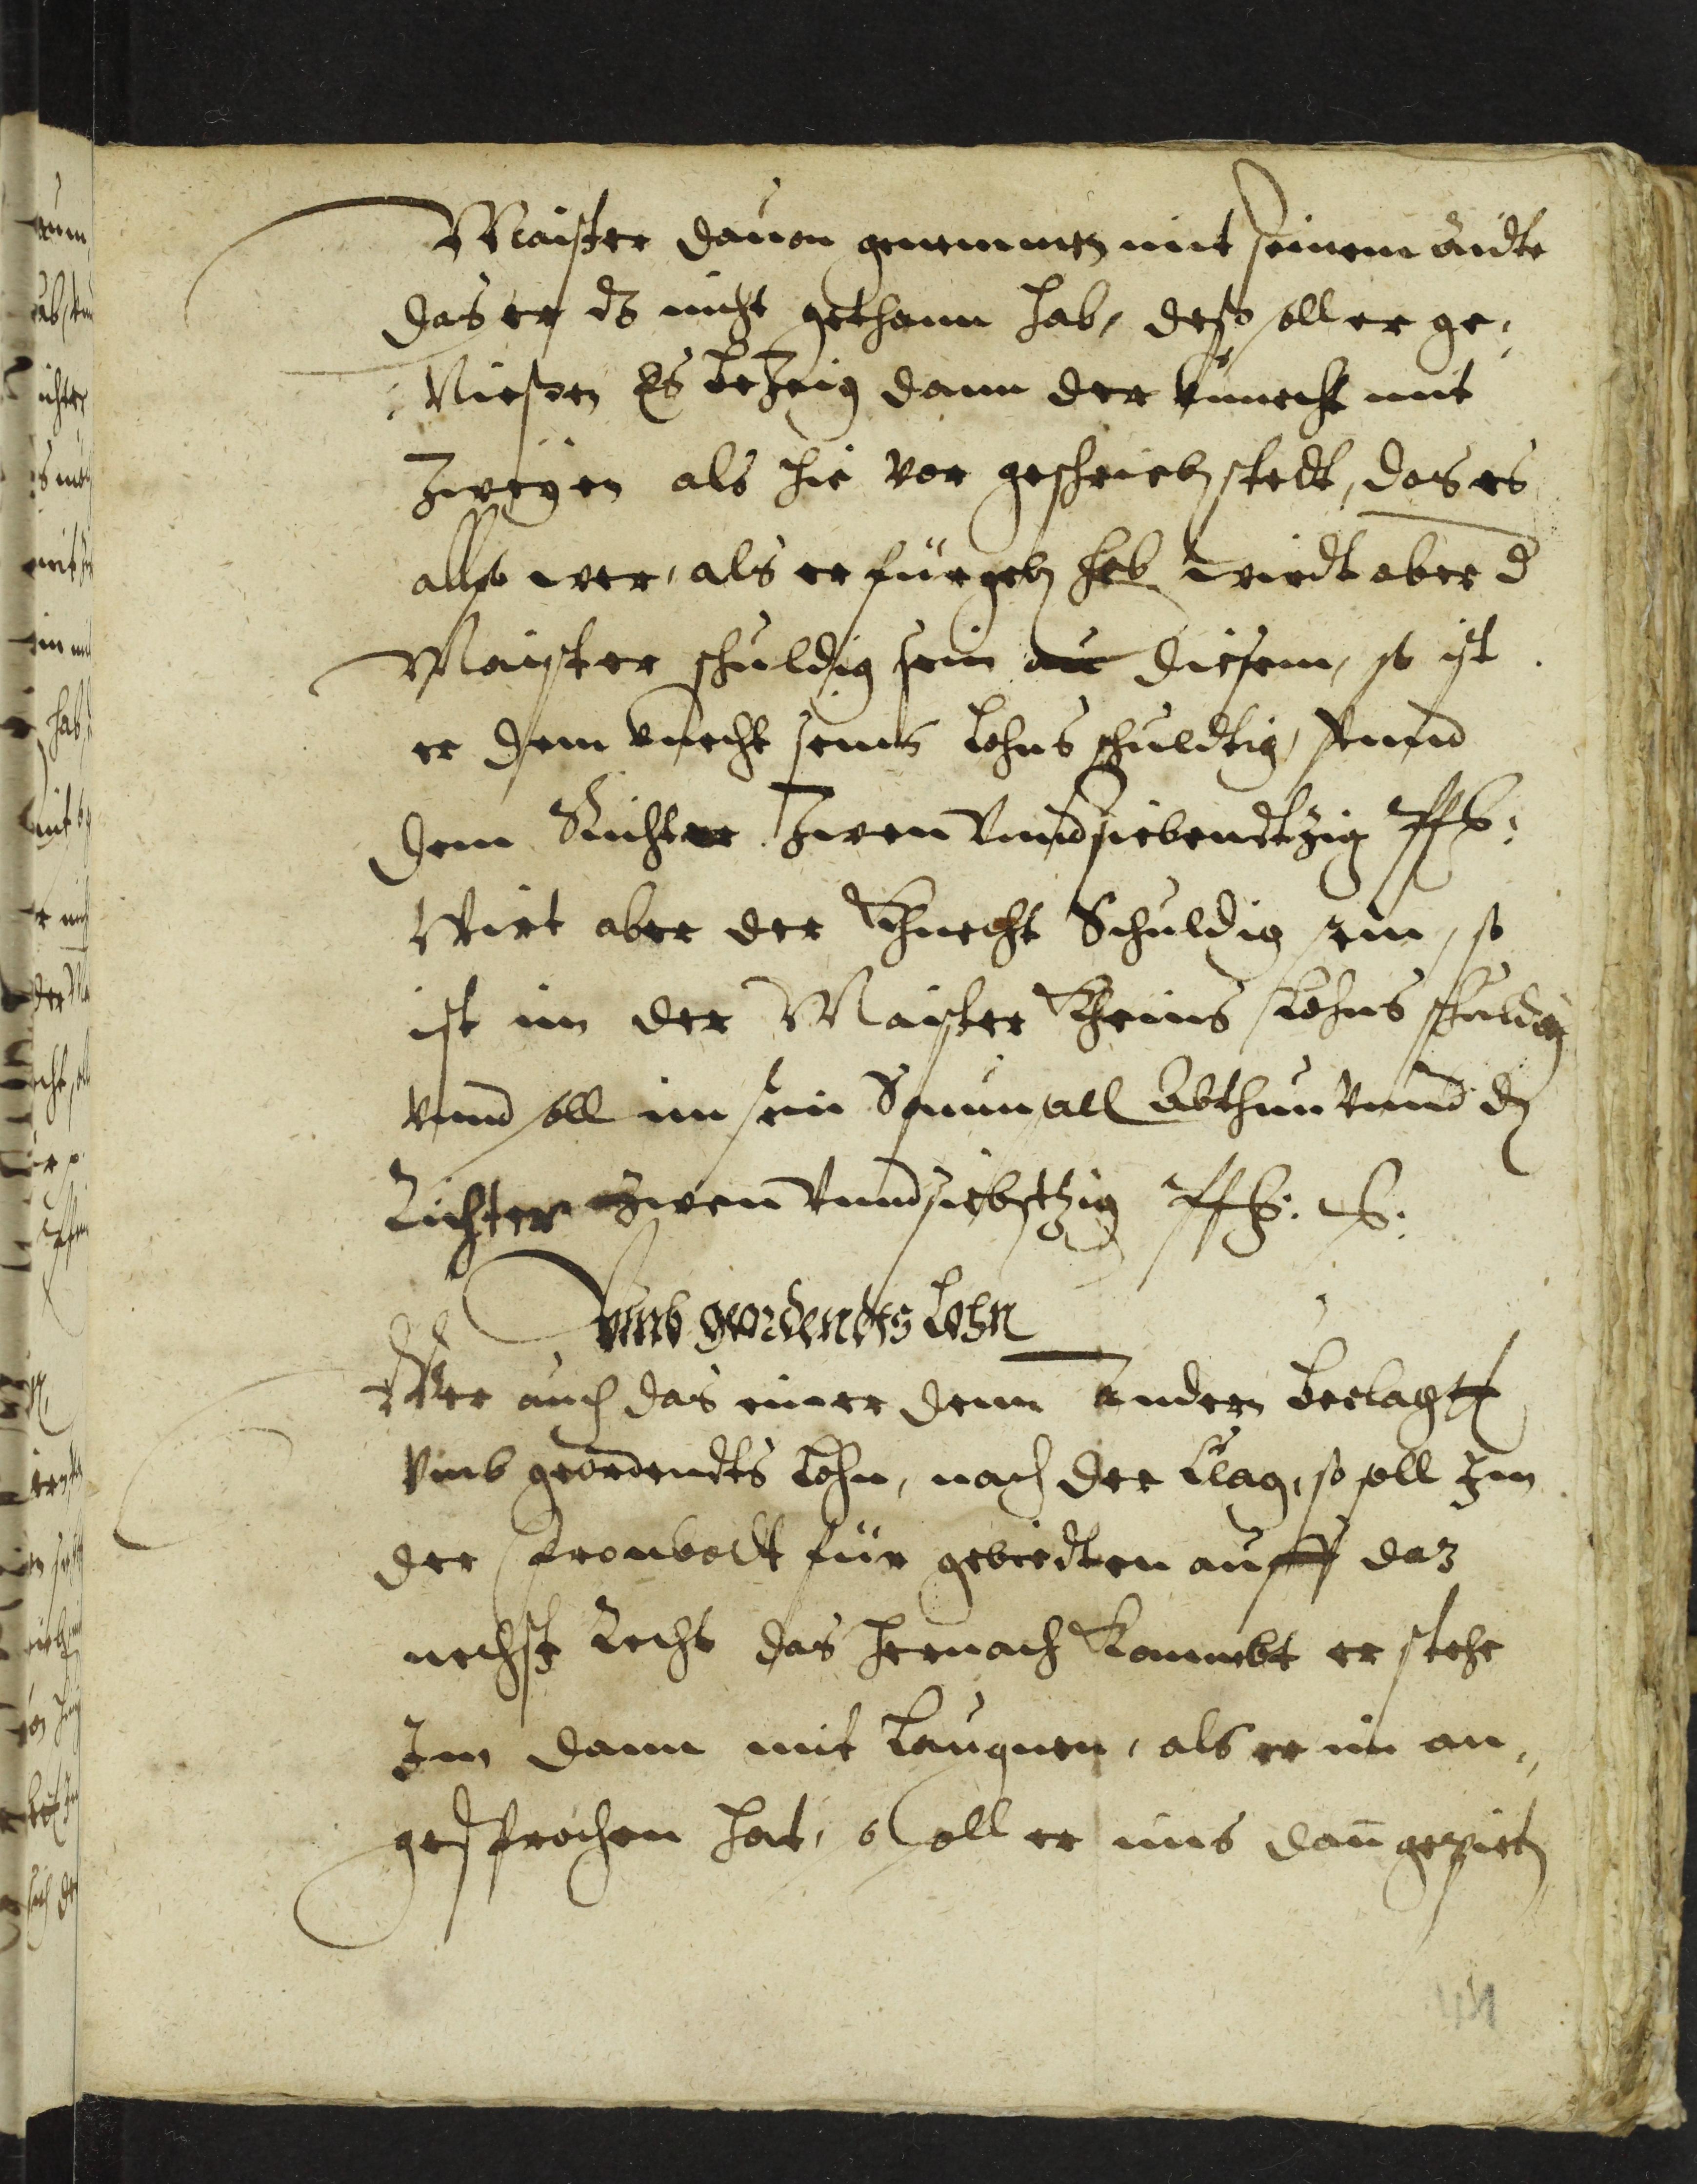 Maister dauon genommen mit seinem aidte
das er dz nicht gethann hab, deß soll er ge¬
niessen Es bezeig dann der knnecht mit
zweÿen als hie vor geschrieben stedt, das es
allso wer, als er fürgeben hab wirdt aber d
Maister schuldig sein an diesem, so ist
er dem knecht seins Lohns schuldtig, vnnd
dem Richter zwen vnndsiebendtzig
Wirt aber der Khnecht Schuldig sein, so
ist im der Maister Kheins Lohns schuldig
vnnd soll im sein Saumsall abthun vnnd den
Richter zwen vnndsiebetzig
Vmb geordendts Lohn
Wer auch das einer dem andern beclagtt
vmb geordendts Lohn, nach der Clag, so soll Im
der Fronbott für gebiedten auff daz
nechst Recht das hernach Kommbt er stehe
Im dann mit Laugnen, als er in an¬
gesprochen hat, so soll er uns dann